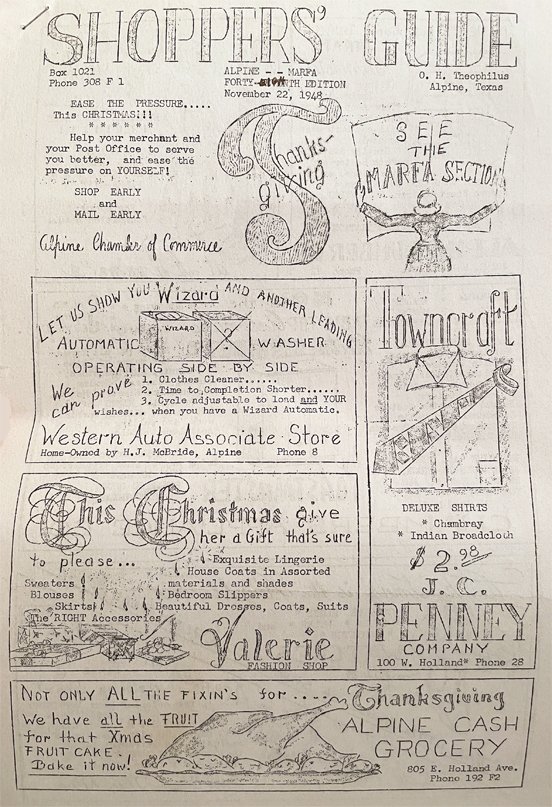 SHOPPERS' GUIDE
Box 1021
Phone 308 F 1
ALPINE - - MARFA
FORTY- EDITION
November 22, 1948
O. H. Theophilus
Alpine, Texas
EASE THE PRESSURE.....
This CHRISTMAS!!!
* * * * * *
Help your merchant and
your Post Office to serve
you better, and ease the
pressure on YOURSELF!
SHOP EARLY
and
MAIL EARLY
Alpine Chamber of Commerce
Thanks-
giving
SEE
THE
MARFA SECTION
LET US SHOW YOU Wizard AND ANOTHER LEADING
AUTOMATIC WIZARD X WASHER
OPERATING SIDE BY SIDE
We can prove
1. Clothes Cleaner......
2. Time to Completion Shorter......
3. Cycle adjustable to load and YOUR
wishes... when you have a Wizard Automatic.
Western Auto Associate Store
Home-Owned by H.J. McBride, Alpine Phone 8
Towncraft
DELUXE SHIRTS
* Chambray
* Indian Broadcloth
$2.98
J. C.
PENNEY
COMPANY
100 W. Holland* Phone 28
This Christmas give
her a Gift that's sure
to please...
Exquisite Lingerie
House Coats in Assorted
Sweaters materials and shades
Blouses Bedroom Slippers
Skirts Beautiful Dresses, Coats, Suits
The RIGHT Accessories
Valerie
FASHION SHOP
NOT ONLY ALL THE FIXIN'S for ..... Thanksgiving
We have all the FRUIT
for that Xmas
FRUIT CAKE.
Bake it now!
ALPINE CASH
GROCERY
805 E. Holland Ave.
Phone 192 F2